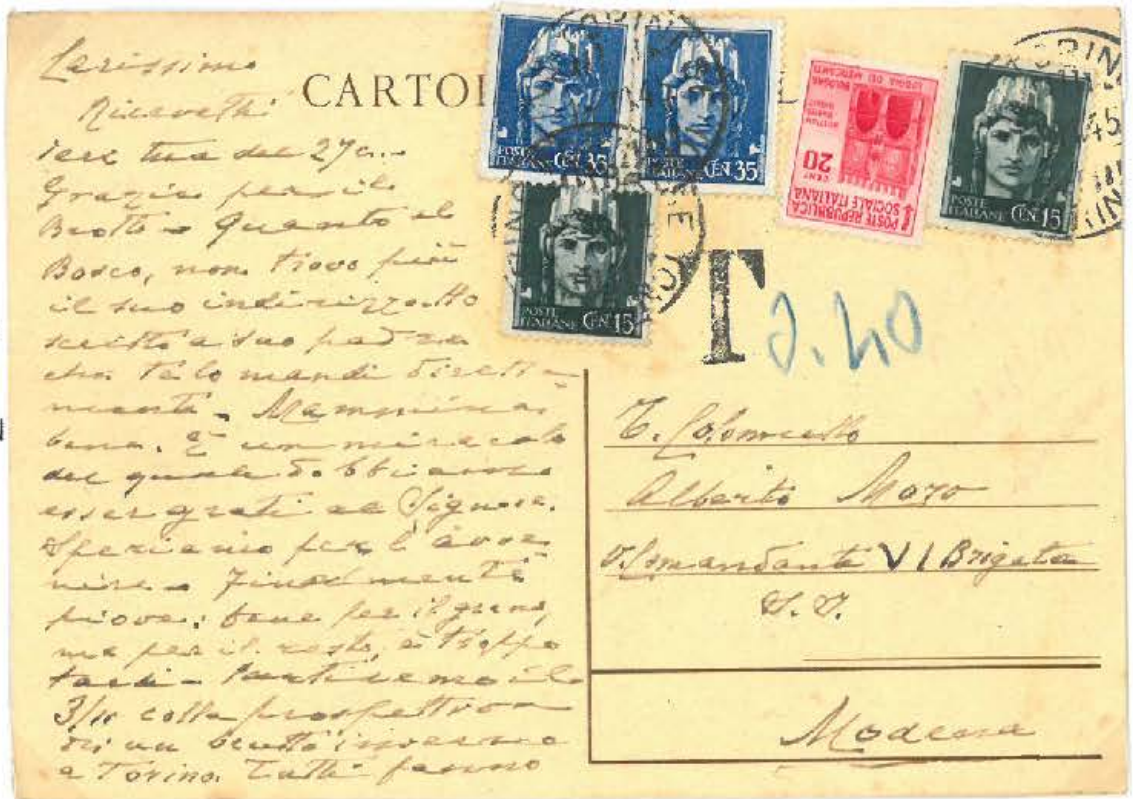 Carissimo
Ricevetti
ieri tua del 27 c.
Grazie per il
Brotto. Quanto al
Bosco, non trovo più
il suo indirizzo. Ho
scritto a suo padre
che te lo mandi diretta-
mente. Mammina
bene. È un miracolo
del quale dobbiamo
esser grati al Signore.
Speriamo per l'avve-
nire. Finalmente
piove: bene per il grano,
ma per il resto, è troppo
tardi. Partiremo il
3/11 colla prospettiva
di un brutto inverno
a Torino. Tutti fanno
CARTO
L
POSTE ITALIANE CEN. 35
POSTE ITALIANE CEN. 35
POSTE ITALIANE CEN. 15
POSTE REPUBBLICA SOCIALE ITALIANA
20 CENT
BOLOGNA
LOGGIA DEI MERCANTI
POSTE ITALIANE CEN. 15
TORINO
45
T 2.40
T. Colonnello
Alberto Moro
V. Comandante VI Brigata
Modena